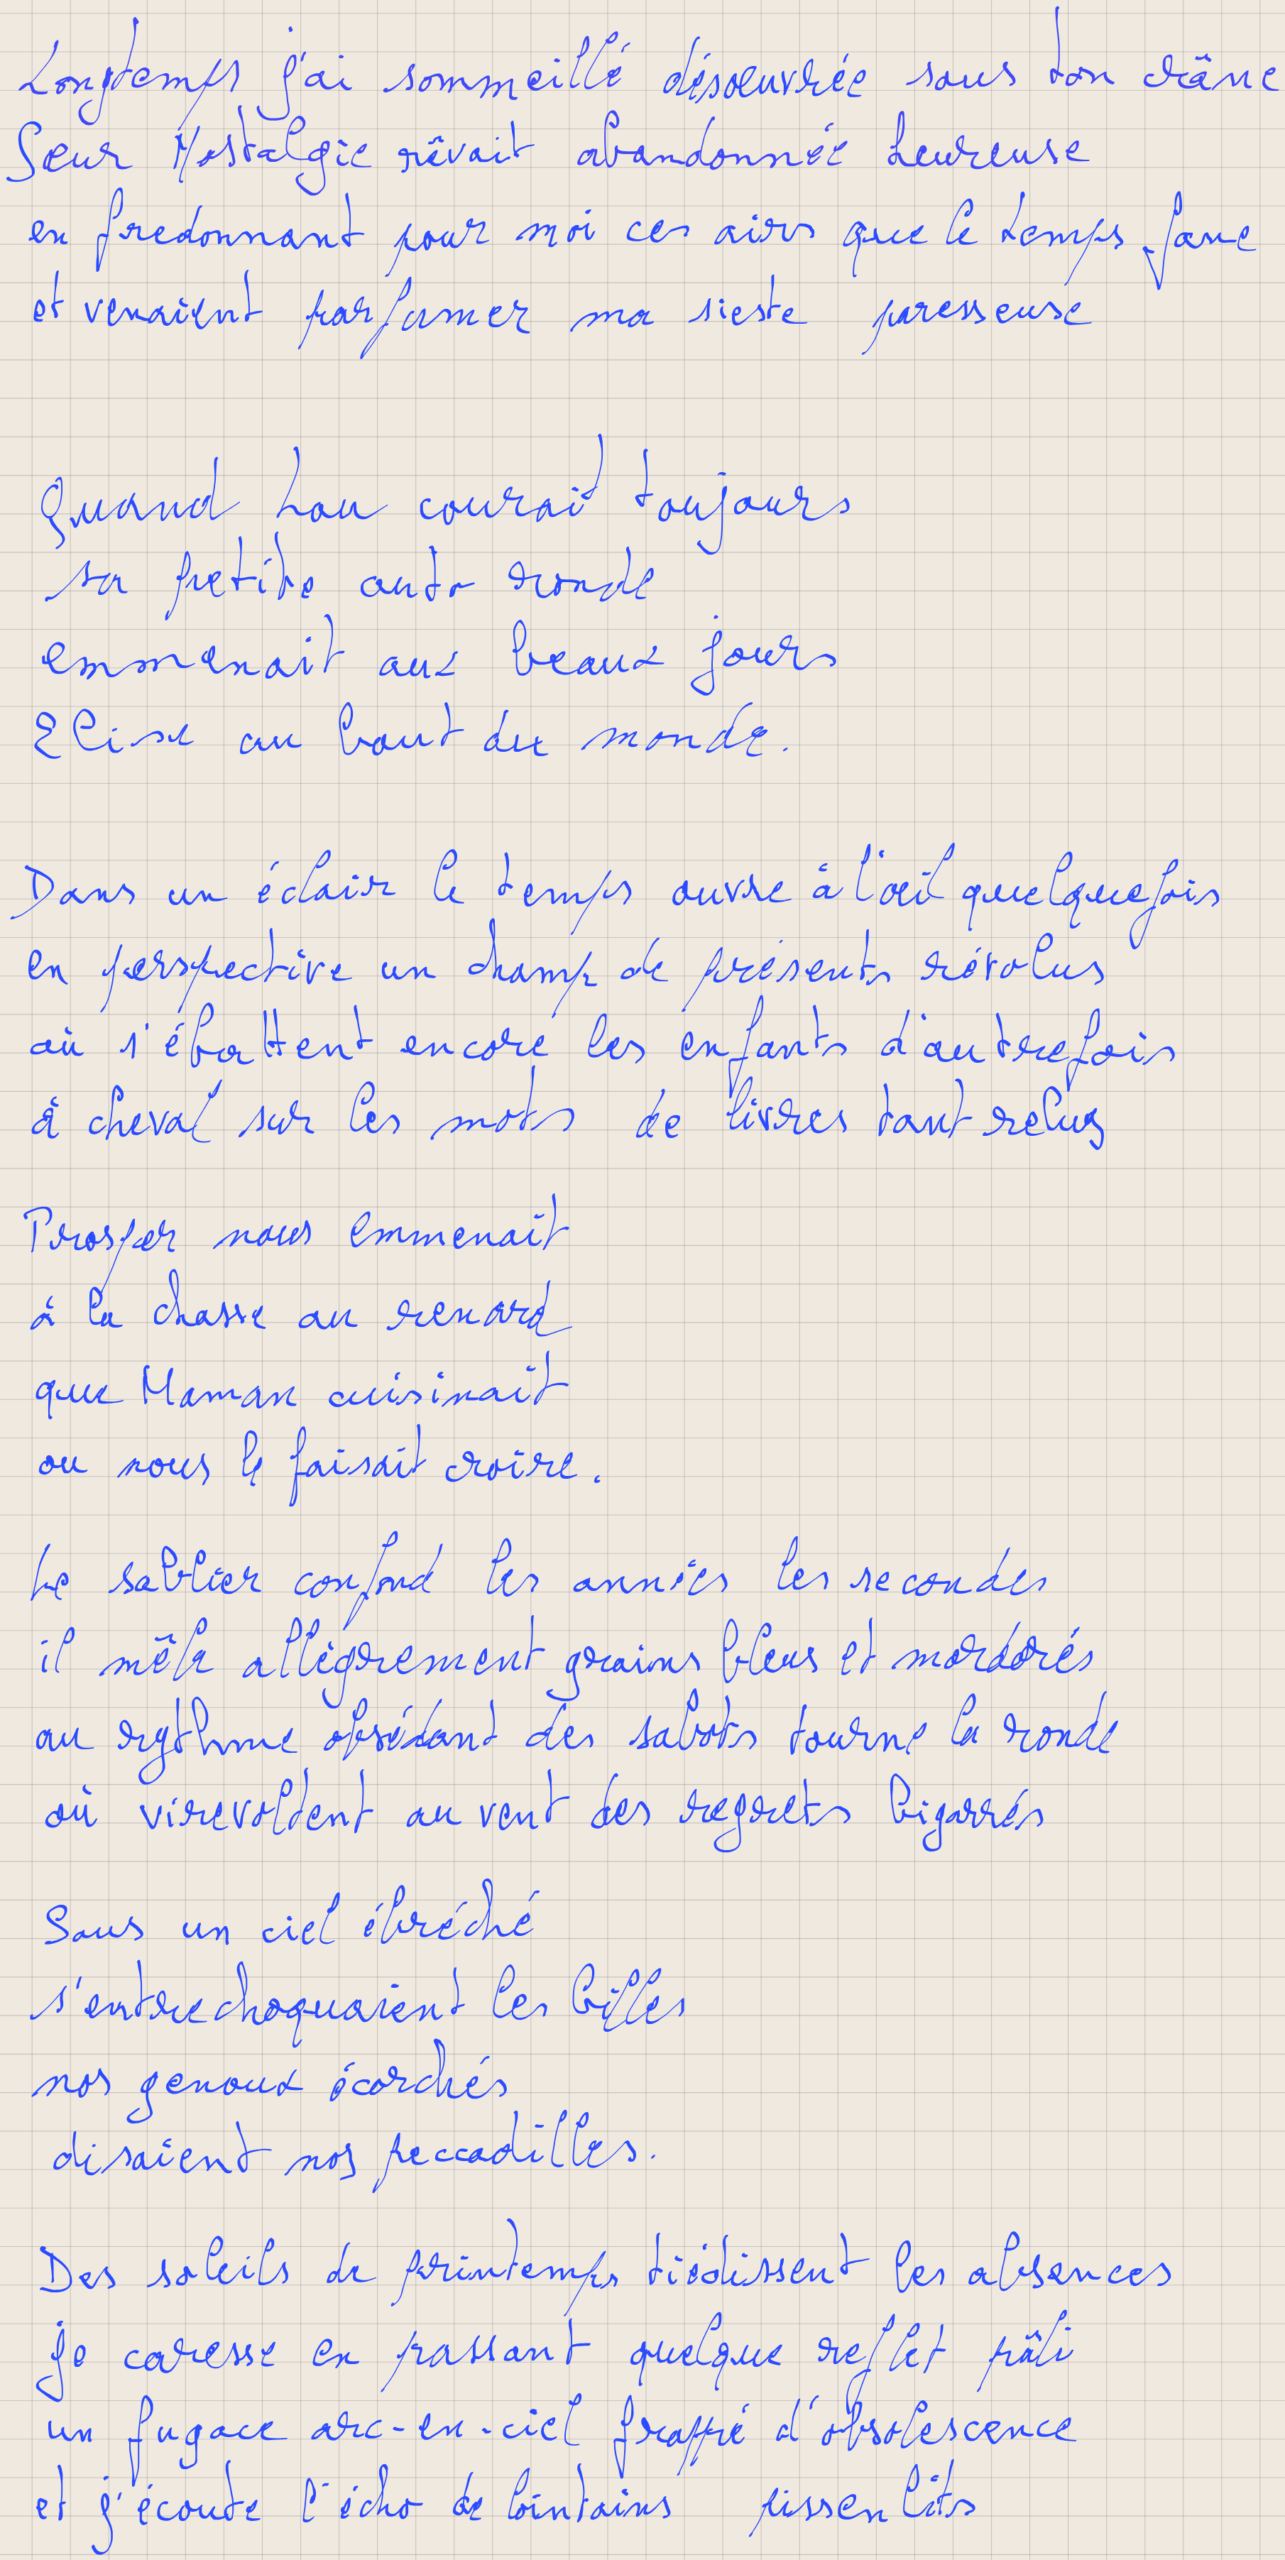 Longtemps j'ai sommeillé désoeuvrée sous ton crâne
Soeur Nostalgie rêvait abandonnée heureuse
en fredonnant pour moi ces airs que le temps fane
et venaient parfumer ma sieste paresseuse
Quand Lou courait toujours
sa petite auto ronde
emmenait aux beaux jours
Elise au bout du monde.
Dans un éclair le temps ouvre à l'oeil quelquefois
en perspective un champ de présents révolus
où s'ébattent encore les enfants d'autrefois
à cheval sur les mots de livres tant relus
Prosper nous emmenait
à la chasse au renard
que Maman cuisinait
ou nous le faisait croire.
Le sablier confond les années les secondes
il mêle allégrement grains bleus et mordorés
au rythme obsédant des sabots tourne la ronde
où virevoltent au vent des regrets bigarrés
Sous un ciel ébréché
s'entrechoquaient les billes
nos genoux écorchés
disaient nos peccadilles.
Des soleils de printemps tiédissent les absences
je caresse en passant quelque reflet pâli
un fugace arc-en-ciel frappé d'obsolescence
et j'écoute l'écho de lointains pissenlits